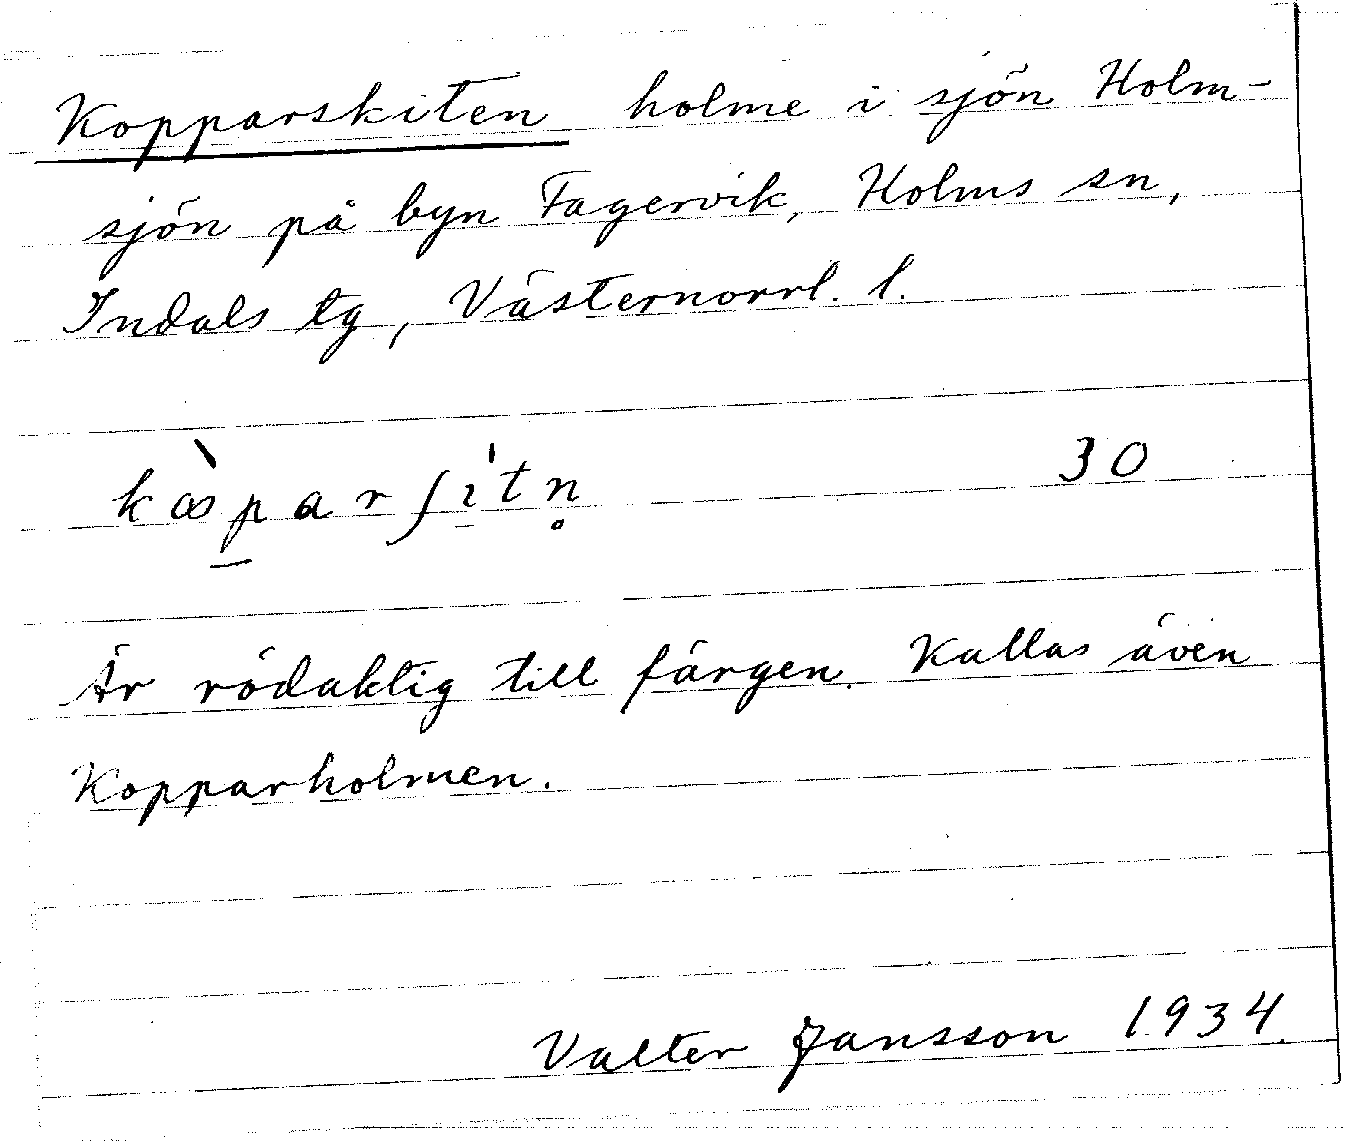 Kopparskiten holme i sjön Holm-
sjön på byn Fagervik, Holms sn,
Indals tg, Västernorrl. l.
kæ̀p̱arʃı̱́tn̥ 30
Är rödaktig till färgen. Kallas även
Kopparholmen.
Valter Jansson 1934.